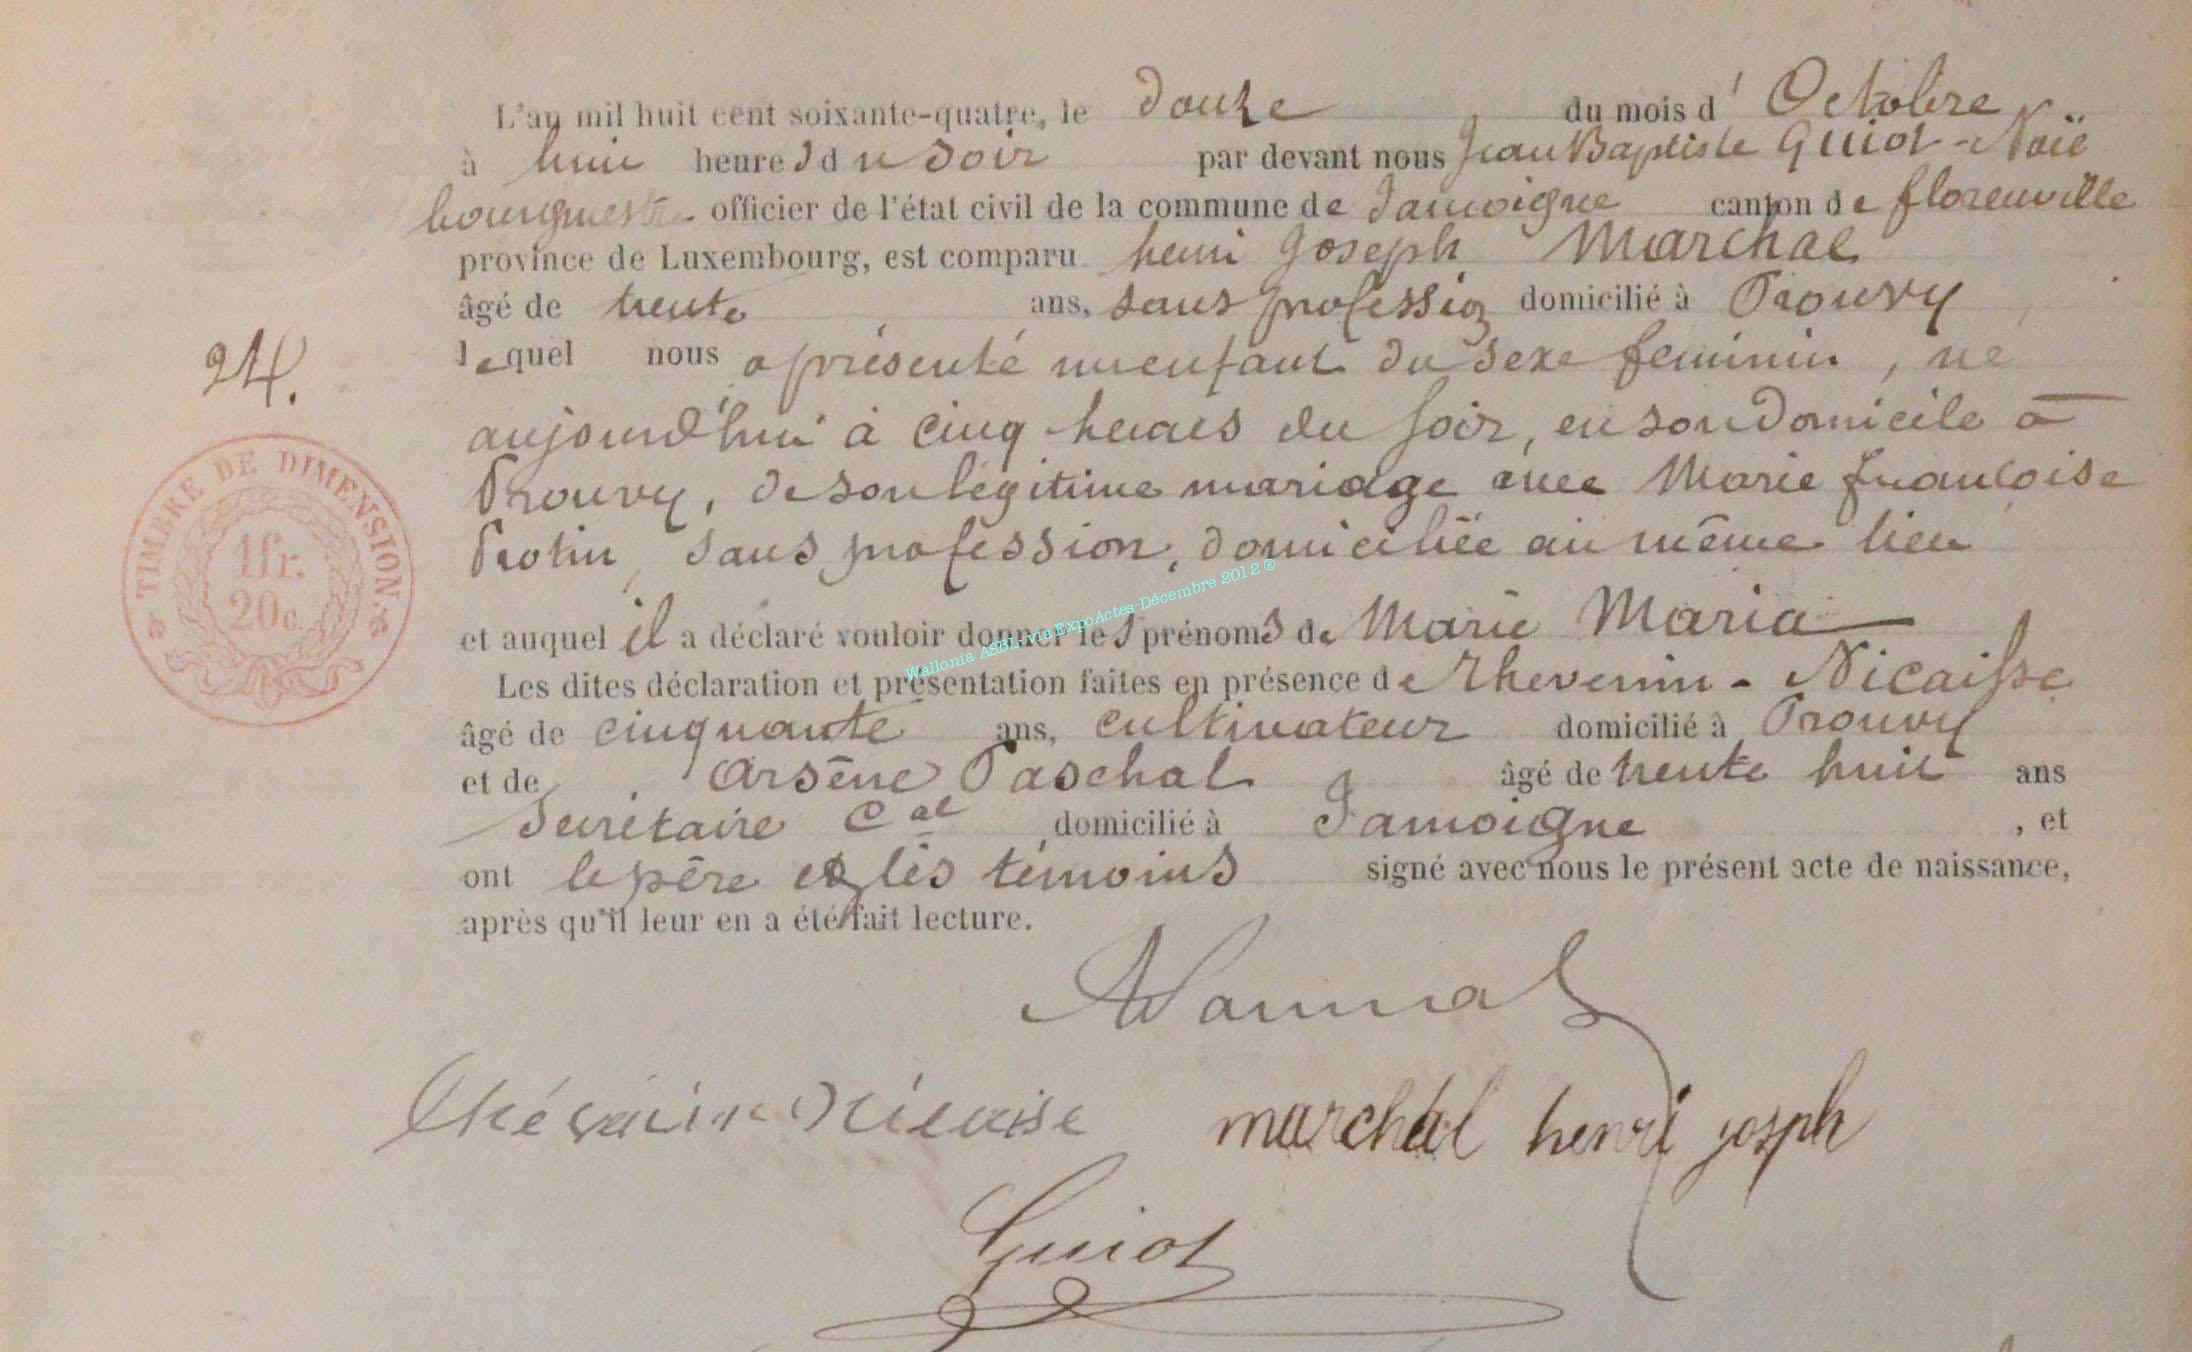 L'an mil huit cent soixante-quatre, le douze du mois d' Octobre
à huit heures du soir par devant nous Jean Baptiste Guiot-Noïé
bourgmestre officier de l'état civil de la commune de Jamoigne canton de florenville
province de Luxembourg, est comparu henri Joseph Marchal
âgé de trente ans, sans profession domicilié à Prouvy
lequel nous a présenté un enfant du sexe feminin, ne
24.
aujourd'hui à cinq heures du soir, en son domicile à
Prouvy, de son légitime mariage avec Marie françoise
Protin, sans profession, domiciliée au même lieu
TIMBRE DE DIMENSION.
1fr.
20c.
et auquel il a déclaré vouloir donner les prénoms de Marie Maria
Wallonia ASBL via ExpoActes-Décembre 2012 ®
Les dites déclaration et présentation faites en présence de Thevenin - Nicaisse
âgé de cinquante ans, cultivateur domicilié à Prouvy
et de Arsène Paschal âgé de trente huit ans
Secrétaire Cal domicilié à Jamoigne, et
ont le père et les témoins signé avec nous le présent acte de naissance,
après qu'il leur en a été fait lecture.
marchal henri josph
Guiot